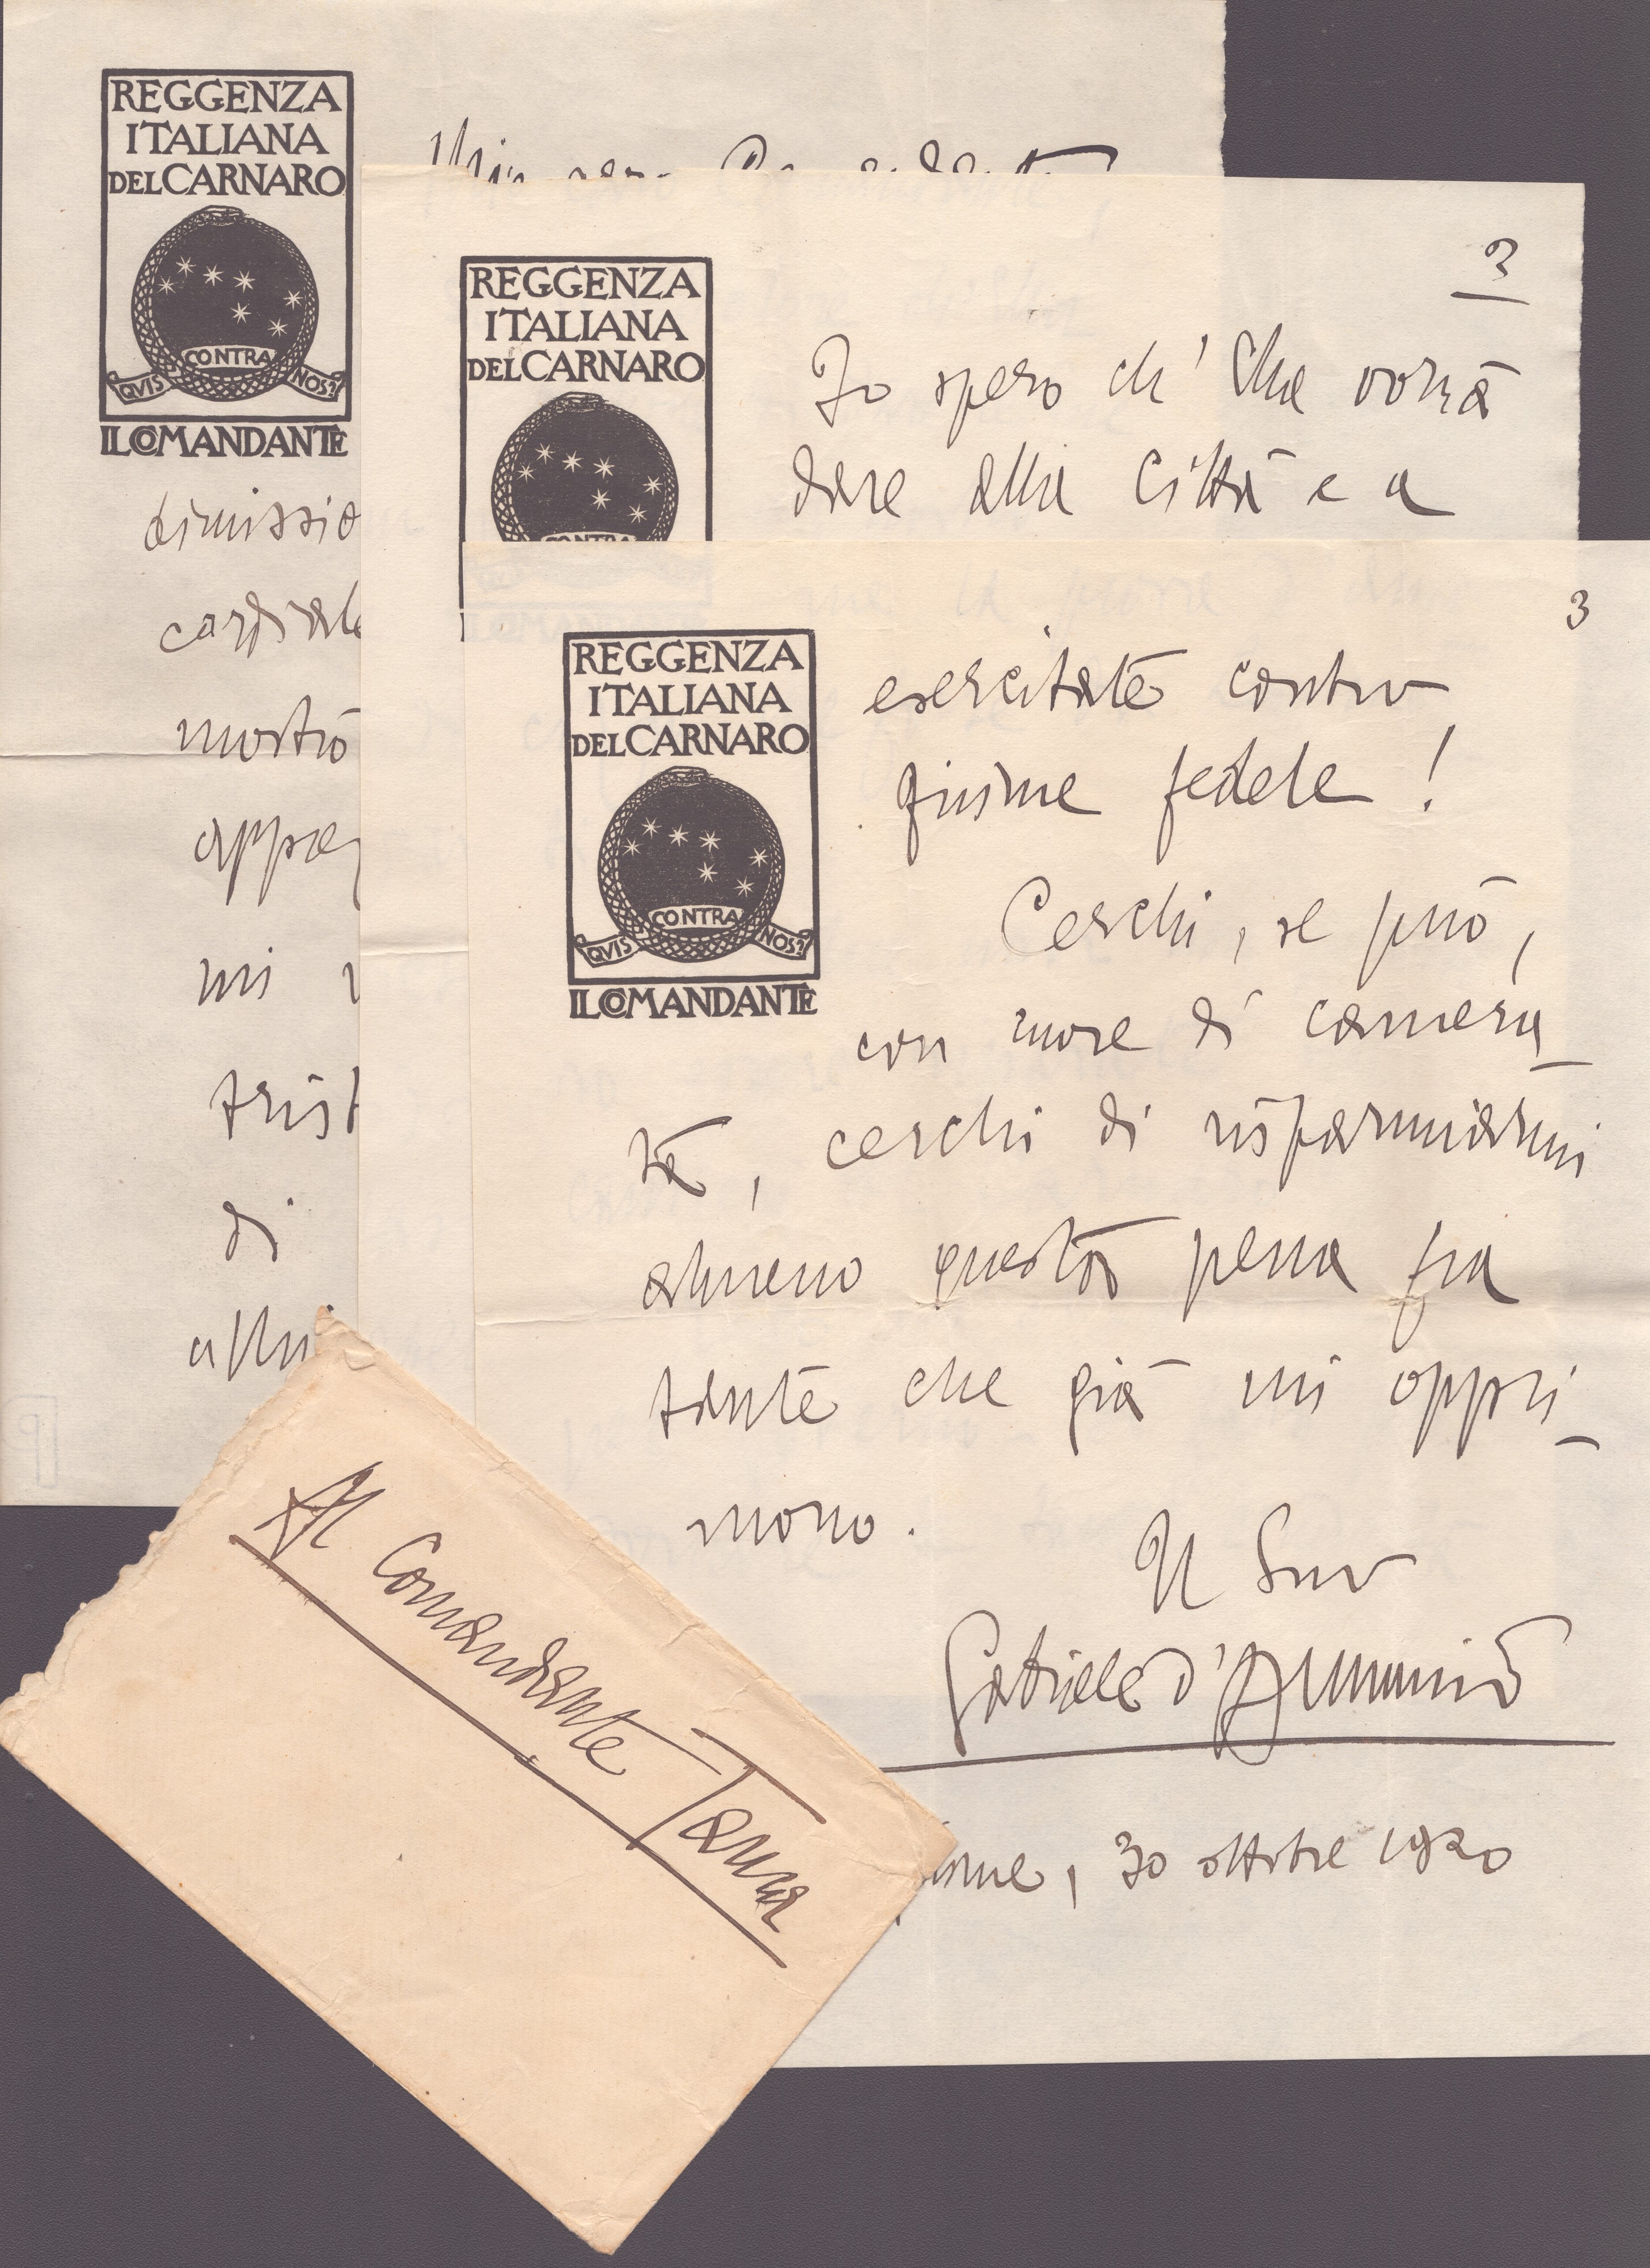 REGGENZA
ITALIANA
DEL CARNARO
QVIS CONTRA NOS?
IL COMANDANTE
dimissio
cordiale
mostrò
mi
trist
di
REGGENZA
ITALIANA
DEL CARNARO
CONTRA
Io spero ch' Ella vorrà
dare alla Città e a
3
REGGENZA
ITALIANA
DEL CARNARO
QVIS CONTRA NOS?
IL COMANDANTE
esercitate contro
Fiume fedele!
Cerchi, se può,
con more di camera
ta, cerchi di risparmiarmi
almeno questa pena fra
tante che già mi oppri-
mono.
Il Suo
Gabriele d'Annunzio
ume, 30 ottobre 1920
Al Comandante